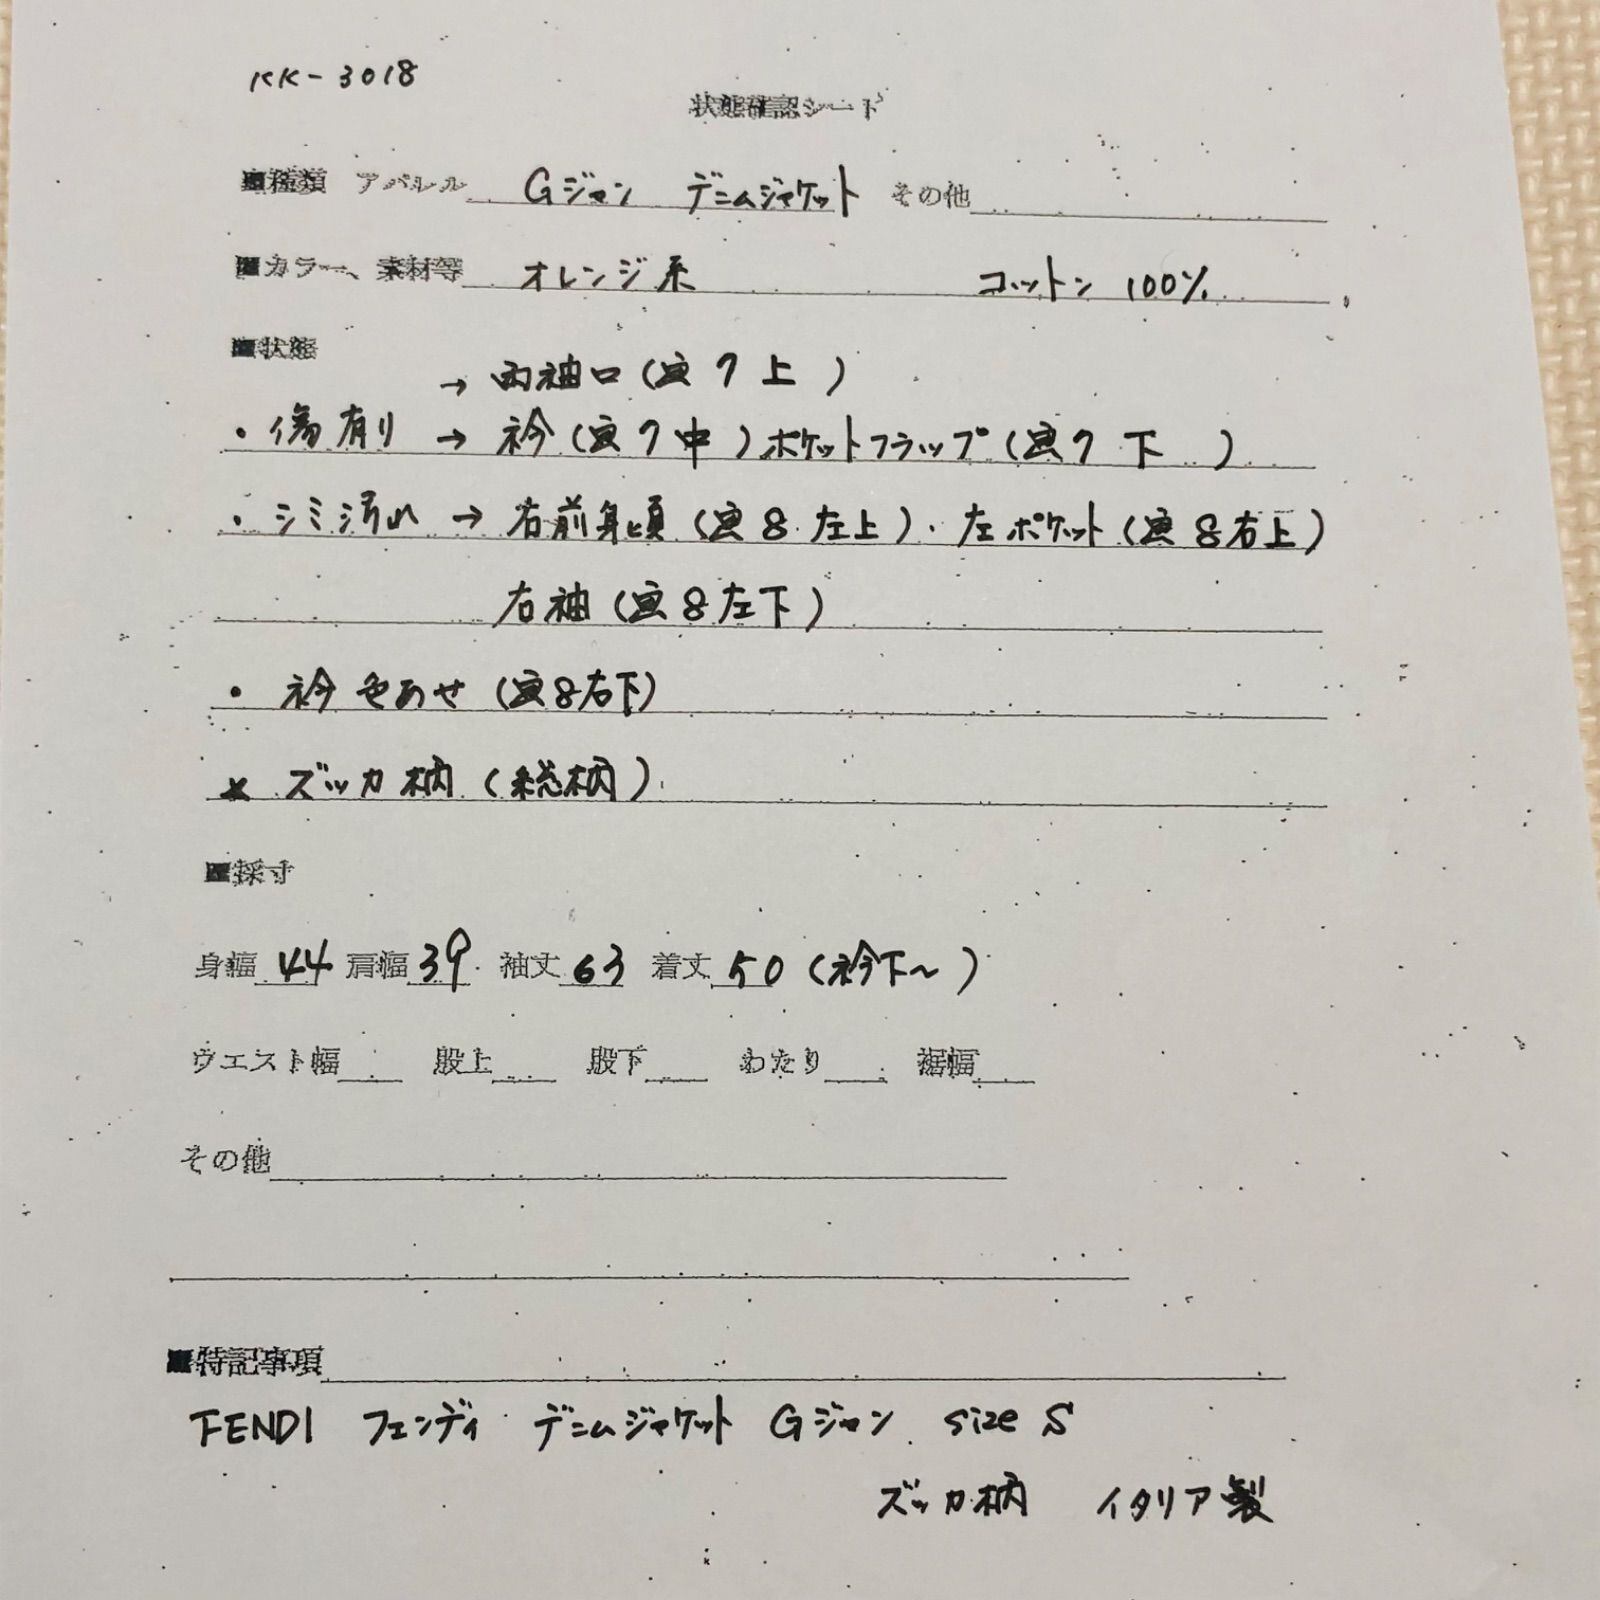 KK-3018
状態確認シート
■種類 アパレル Gジャン デニムジャケット その他
■カラー、素材等 オレンジ系 コットン 100%
■状態
→ 両袖口(画7上)
・傷有り → 衿(画7中)ポケットフラップ(画7下)
・シミ汚れ → 右前身頃(画8左上)・左ポケット(画8右上)
右袖(画8左下)
・衿色あせ(画8右下)
× ズッカ柄(総柄)
■採寸
身幅 44 肩幅 39 袖丈 63 着丈 50(衿下〜)
ウエスト幅 股上 股下 わたり 裾幅
その他
■特記事項
FENDI フェンディ デニムジャケット Gジャン size S
ズッカ柄 イタリア製